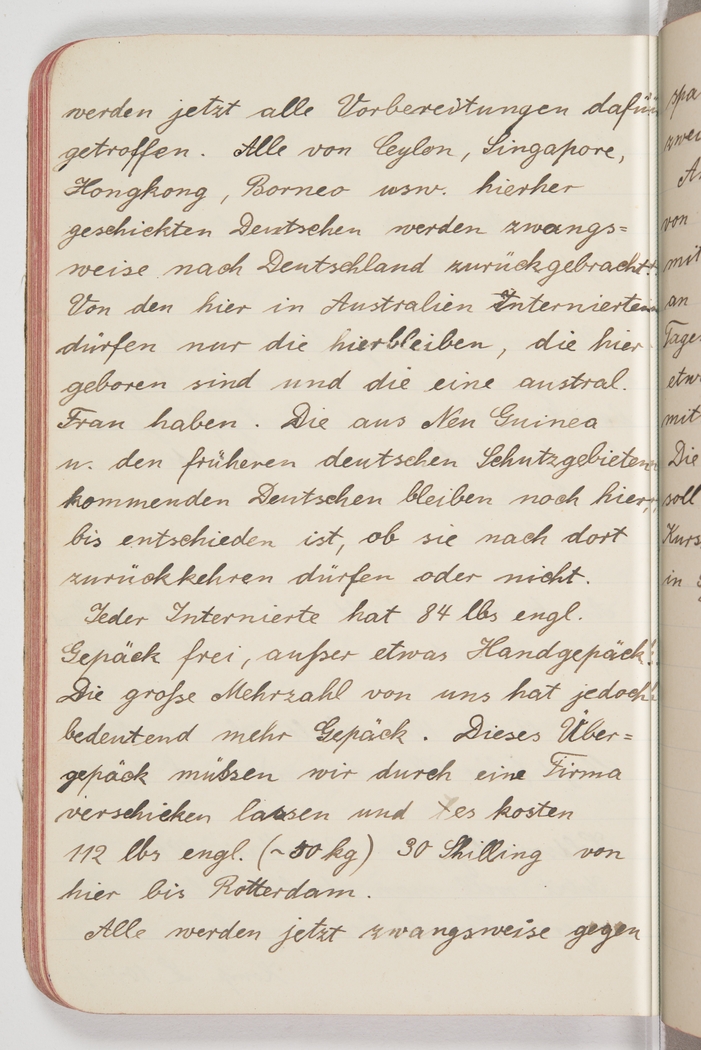 werden jetzt alle Vorbereitungen dafür
getroffen. Alle von Ceylon, Singapore,
Hongkong, Borneo usw. hierher
geschickten Deutschen werden zwangs=
weise nach Deutschland zurückgebracht.
Von den hier in Australien Internierten
dürfen nur die hierbleiben, die hier
geboren sind und die eine austral.
Frau haben. Die aus Neu Guinea
u. den früheren deutschen Schutzgebieten
kommenden Deutschen bleiben noch hier,
bis entschieden ist, ob sie nach dort
zurückkehren dürfen oder nicht.
Jeder Internierte hat 84 lbs engl.
Gepäck frei, außer etwas Handgepäck.
Die große Mehrzahl von uns hat jedoch
bedeutend mehr Gepäck. Dieses Über=
gepäck müssen wir durch eine Firma
verschicken lassen und es kosten
112 lbs engl. (~50 kg) 30 Shilling von
hier bis Rotterdam.
Alle werden jetzt zwangsweise gegen
spa
zwei
von
mit
an
Tage
etw
mit
Die
soll
Kurs
in